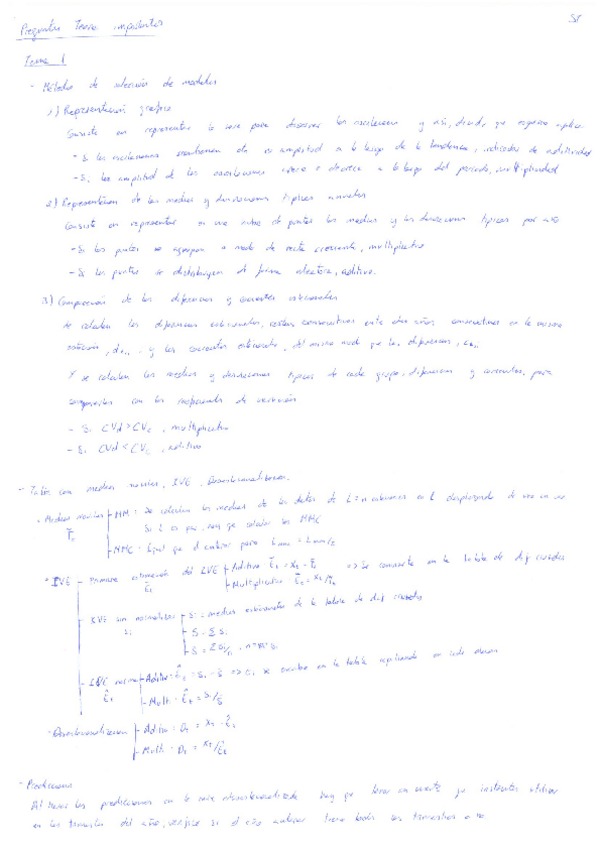 Preguntas Teoría importantes
Tema 1
- Métodos de selección de modelos
1) Representación gráfica
Consiste en representar la serie para observar las oscilaciones y así, decidir que esquema aplicar
- Si las oscilaciones mantienen su amplitud a lo largo de la tendencia, indicador de aditividad
- Si la amplitud de las oscilaciones crece o decrece a lo largo del periodo, multiplicidad
2) Representación de las medias y desviaciones típicas anuales
Consiste en representar en una nube de puntos las medias y las desviaciones típicas por año
- Si los puntos se agrupan a modo de recta creciente, multiplicativo
- Si los puntos se distribuyen de forma aleatoria, aditivo.
3) Comparación de las diferencias y cocientes estacionales
Se calculan las diferencias estacionales, restas consecutivas entre años consecutivos en la misma
estación, y los cocientes estacionales, del mismo modo que las diferencias,
Y se calculan las medias y desviaciones típicas de cada grupo, diferencias y cocientes, para
compararlos con los coeficientes de variación
- Si CVd > CVc, multiplicativo
- Si CVd < CVc, aditivo
- Tabla con medias móviles, IVE, Desestacionalización.
- Medias móviles - MM: Se calculan las medias de los datos de L=n estaciones en L desplazando de uno en uno
Si L es par, hay que calcular las MMC
- MMC: Igual que el anterior pero
- IVE - Primera estimación del IVE - Aditivo Et = xt - => Se convierte en la tabla de dif cruzados
- Multiplicativo Et = xt/
- IVE sin normalizar si - si = medias estacionales de la tabla de dif cruzados
- S = Σ si
- IVE norma Êt - Aditivo Êt = si - s => se escribe en la tabla replicando en cada
- Mult. Êt = si/s
- Desestacionalización - Aditivo - Dt = xt - Êt
- Mult. - Dt = xt/Êt
- Predicciones
Al hacer las predicciones en la serie desestacionalizada hay que tener en cuenta que instantes utilizar
en los trimestres del año, verificar si el año anterior tiene todos los trimestres o no